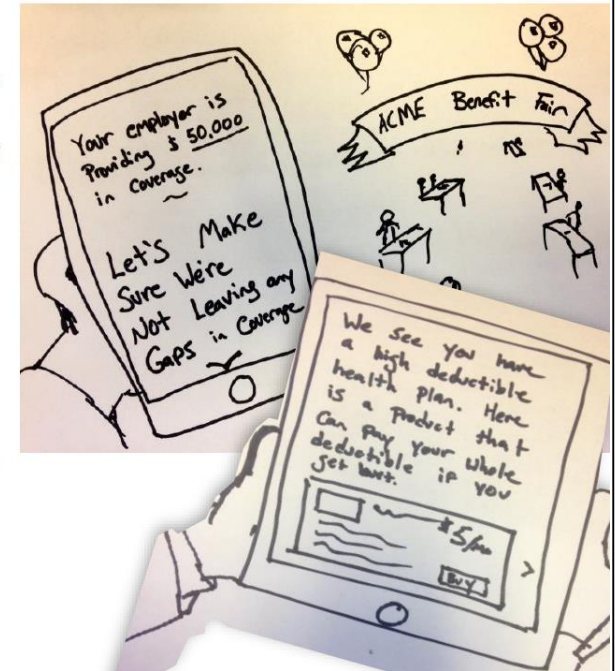 Your employer is
Providing $ 50,000
in coverage.
Let's Make
Sure We're
Not Leaving any
Gaps in Coverage
ACME Benefit Fair
We see you have
a high deductible
health plan. Here
is a Product that
Can pay your whole
deductible if you
get hurt.
$5/mo
BUY